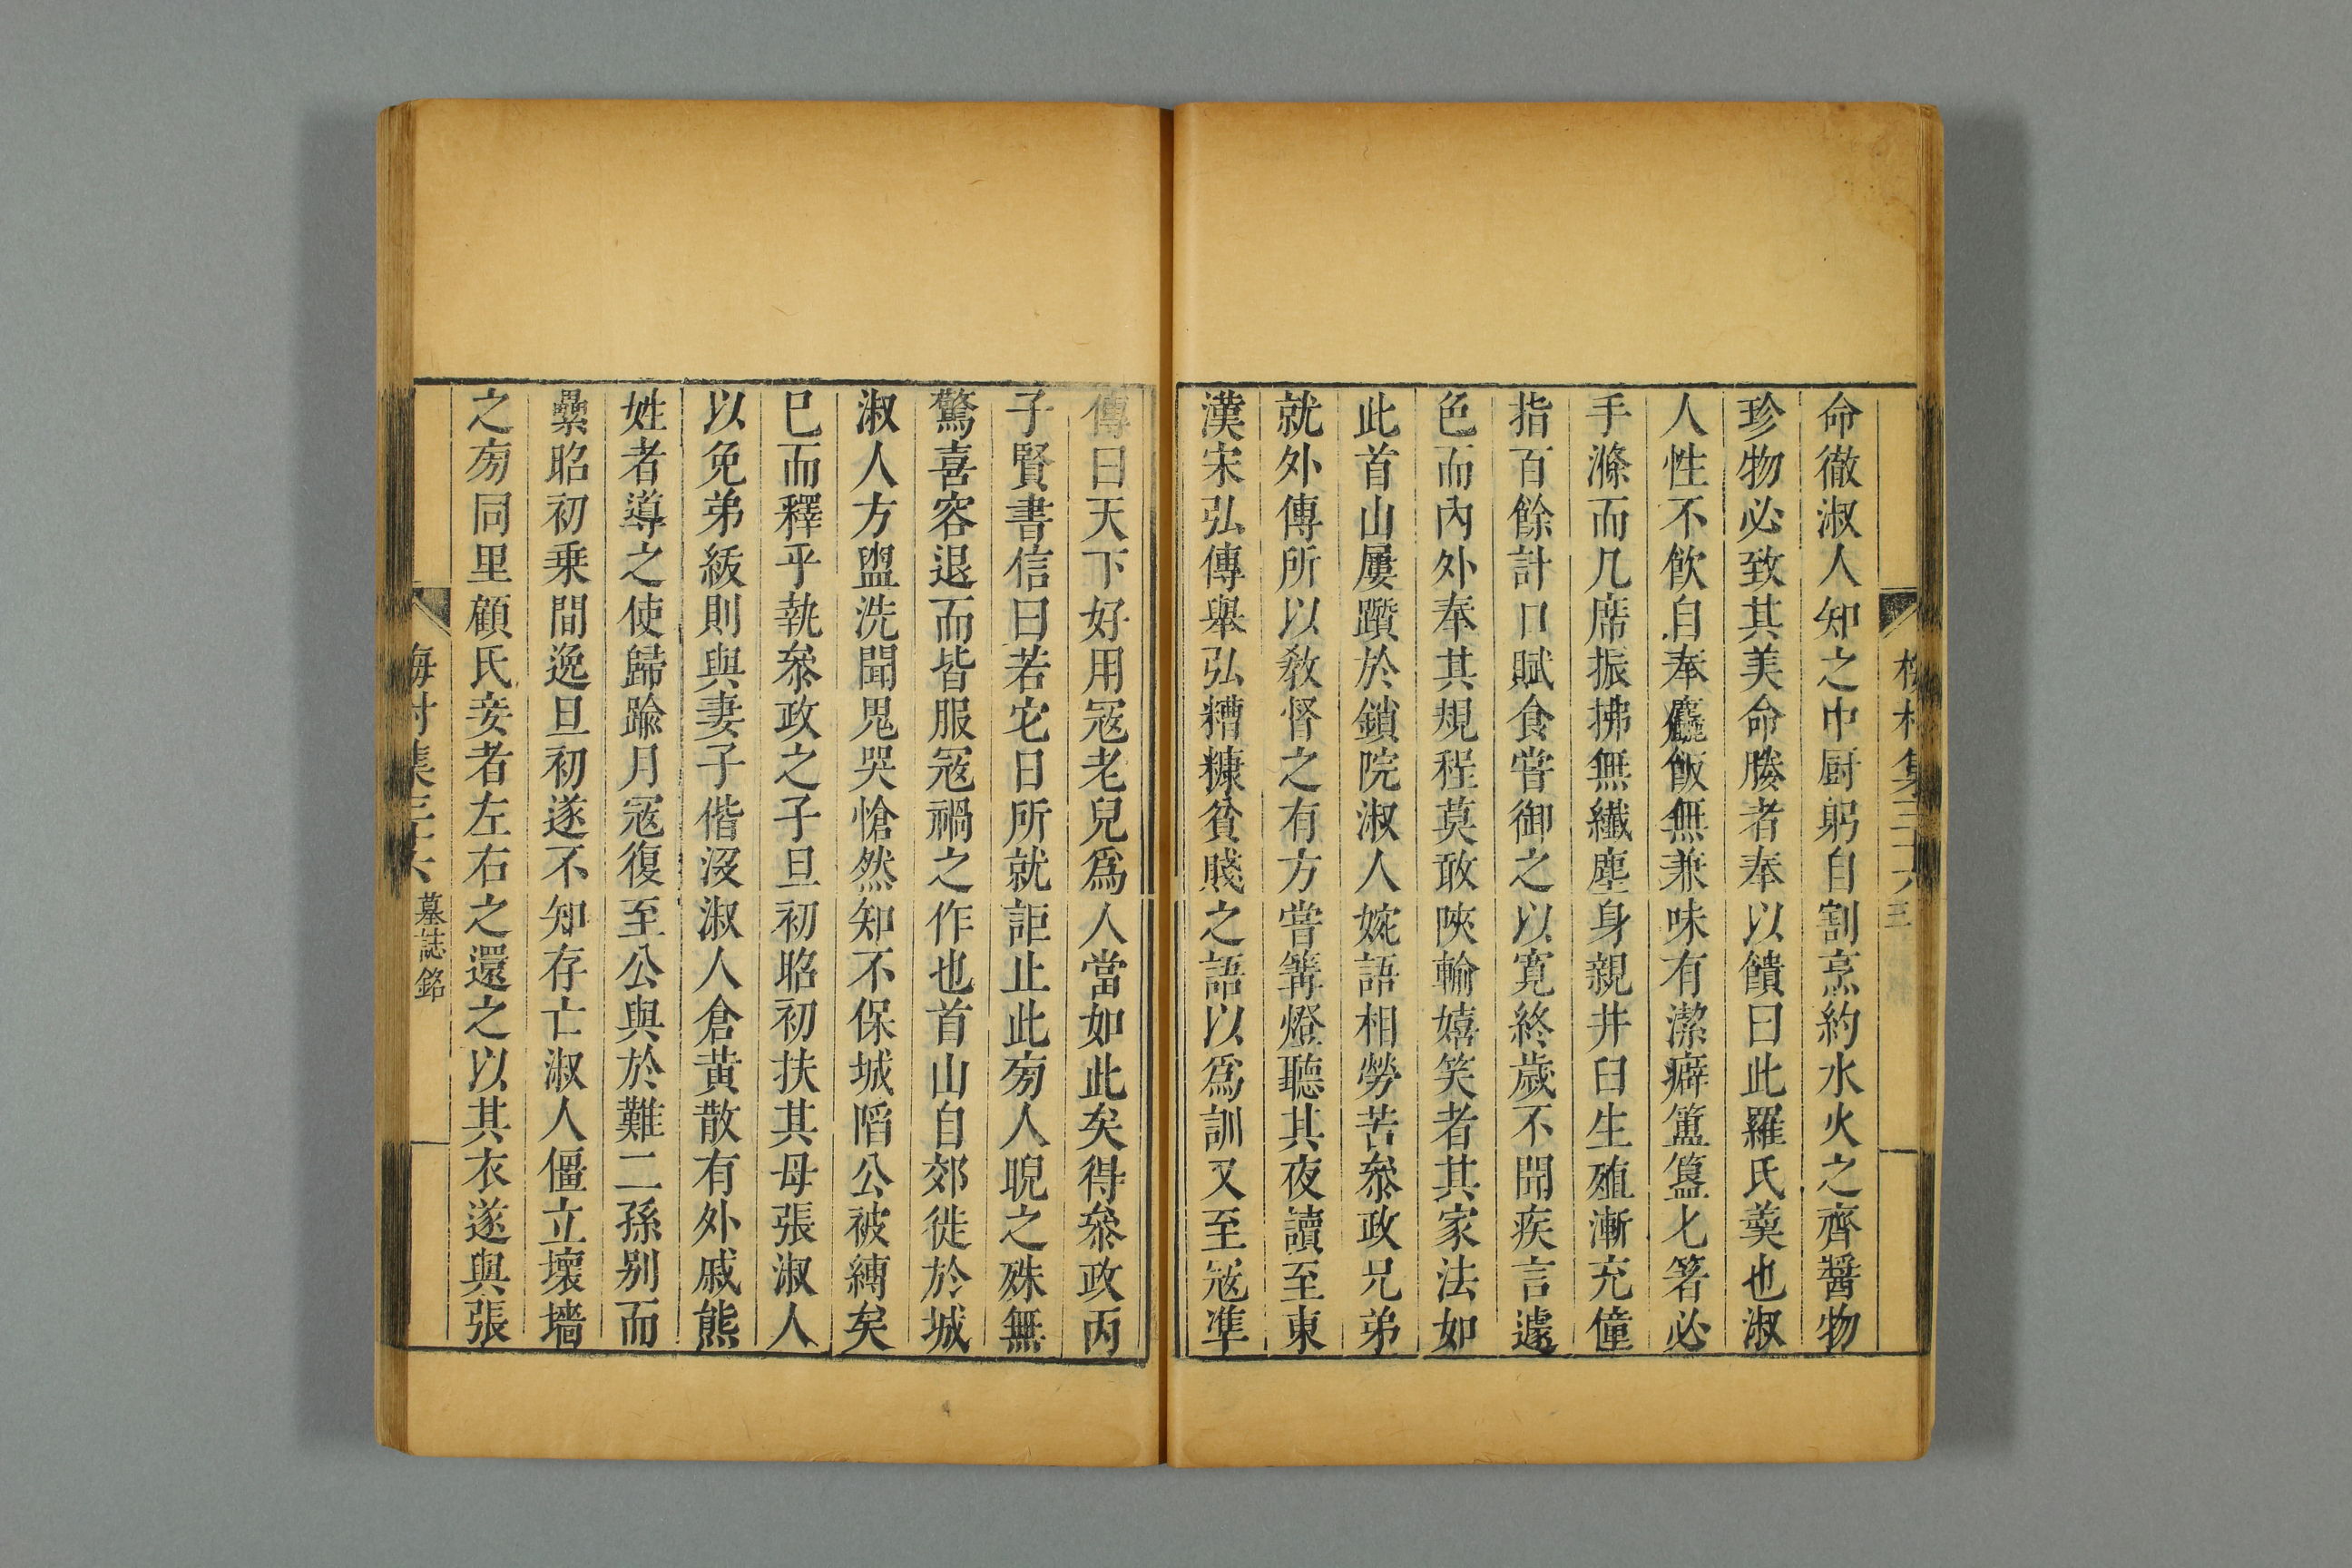 梅村集三十六 三
命徹淑人知之中厨躬自割烹約水火之齊醬物
珍物必致其美命媵者奉以饋曰此羅氏羮也淑
人性不飲自奉麤飯無兼味有潔癖簠簋匕箸必
手滌而几席振拂無纖塵身親井臼生殖漸充僮
指百餘計口賦食嘗御之以寛終歲不聞疾言遽
色而內外奉其規程莫敢陝輸嬉笑者其家法如
此首山屢躓於鎖院淑人婉語相勞苦叅政兄弟
就外傳所以敎督之有方嘗篝燈聽其夜讀至東
漢宋弘傳舉弘糟糠貧賤之語以爲訓又至冦準
傳曰天下好用冦老兒爲人當如此矣得叅政丙
子賢書信曰若它日所就詎止此旁人睨之殊無
驚喜容退而皆服冦禍之作也首山自郊徙於城
淑人方盥洗聞鬼哭愴然知不保城䧟公被縛矣
巳而釋乎執叅政之子旦初昭初扶其母張淑人
以免弟紱則與妻子偕沒淑人倉黃散有外戚熊
姓者導之使歸踰月冦復至公與於難二孫别而
纍昭初乗間逸旦初遂不知存亡淑人僵立壞墻
之旁同里顧氏妾者左右之還之以其衣遂與張
梅村集三十六 墓誌銘